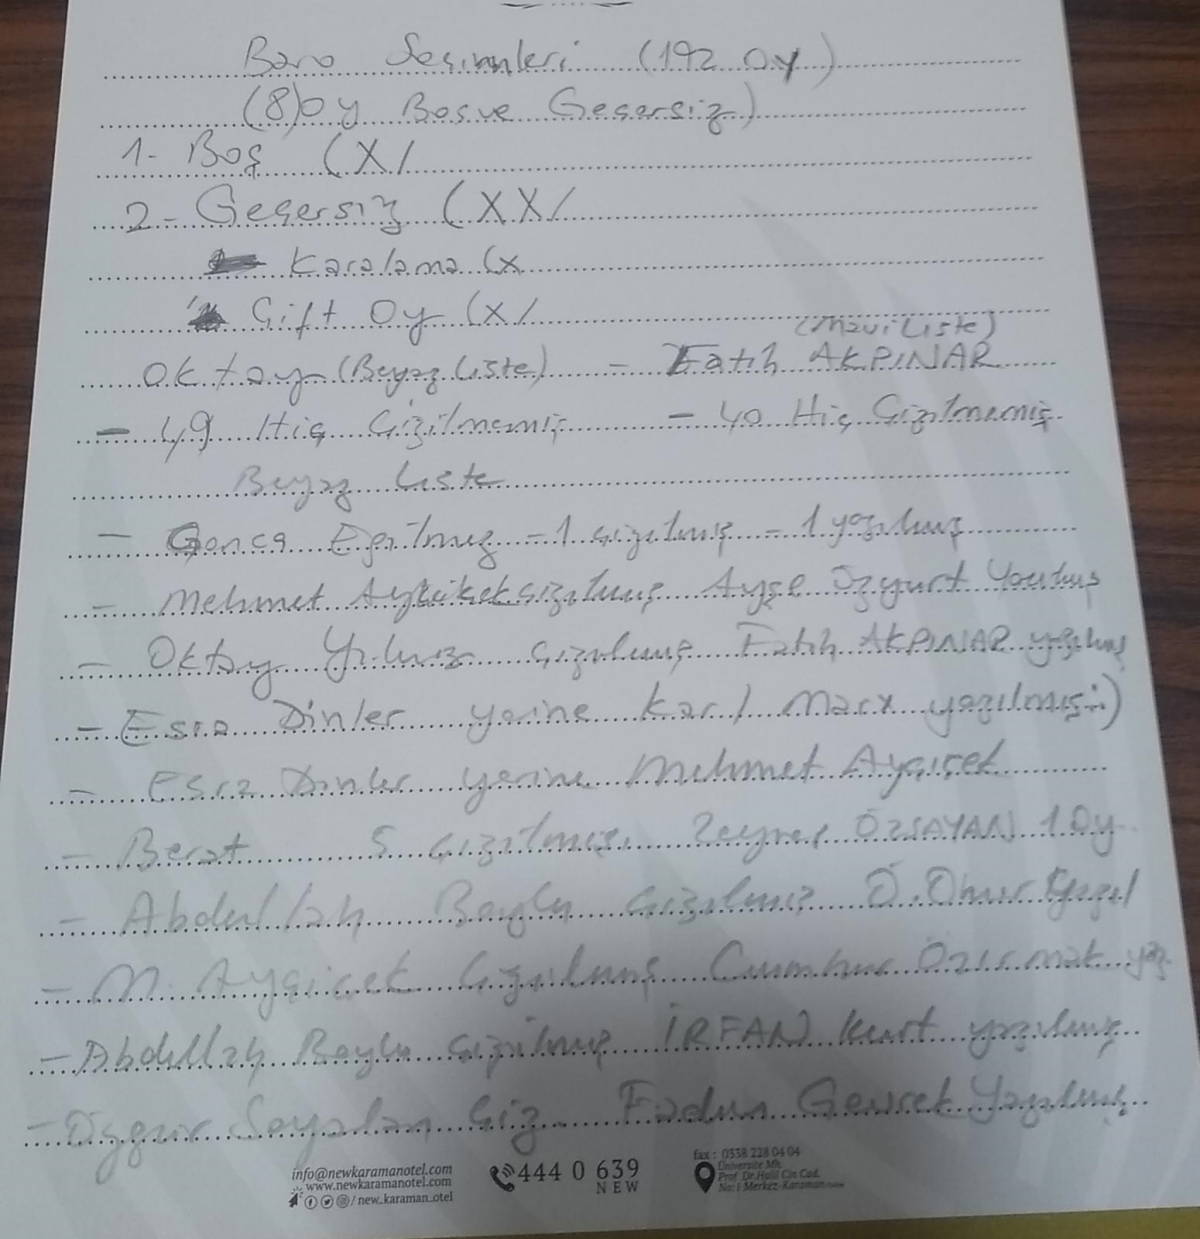 Baro Seçimleri (192 oy)
(8) oy Boş ve Geçersiz)
1- Boş (X/
2- Geçersiz (XX/
Karalama (x
Çift Oy (x/
(Mavi Liste)
Oktay (Beyaz Liste) - Fatih AKPINAR
- 49 Hiç Çizilmemiş - 40 Hiç Çizilmemiş
Beyaz Liste
- Gonca - 1 çizilmiş - 1 yazılmış
- Mehmet çizilmiş Ayşe Özyurt
- Oktay Yılmaz çizilmiş Fatih AKPINAR yazılmış
- Esra Dinler yerine Karl Marx yazılmış :)
- Esra Dinler yerine Mehmet Ayçiçek
- Berat 5 çizilmiş. Zeynel ÖZSAYAN 1 Oy
- Abdullah Boylu çizilmiş Ö. Ömür
- M. Ayçiçek Çizilmiş Cumhur yaz.
- Abdullah Boylu çizilmiş İRFAN Kurt yazılmış
- Özgür Soyalan Çiz Gevrek Yazılmış
info@newkaramanotel.com
www.newkaramanotel.com
/ new_karaman_otel
444 0 639
NEW
fax : 0338 228 04 04
Üniversite Mh.
Prof. Dr. Halil Cin Cad.
No: 1 Merkez-Karaman